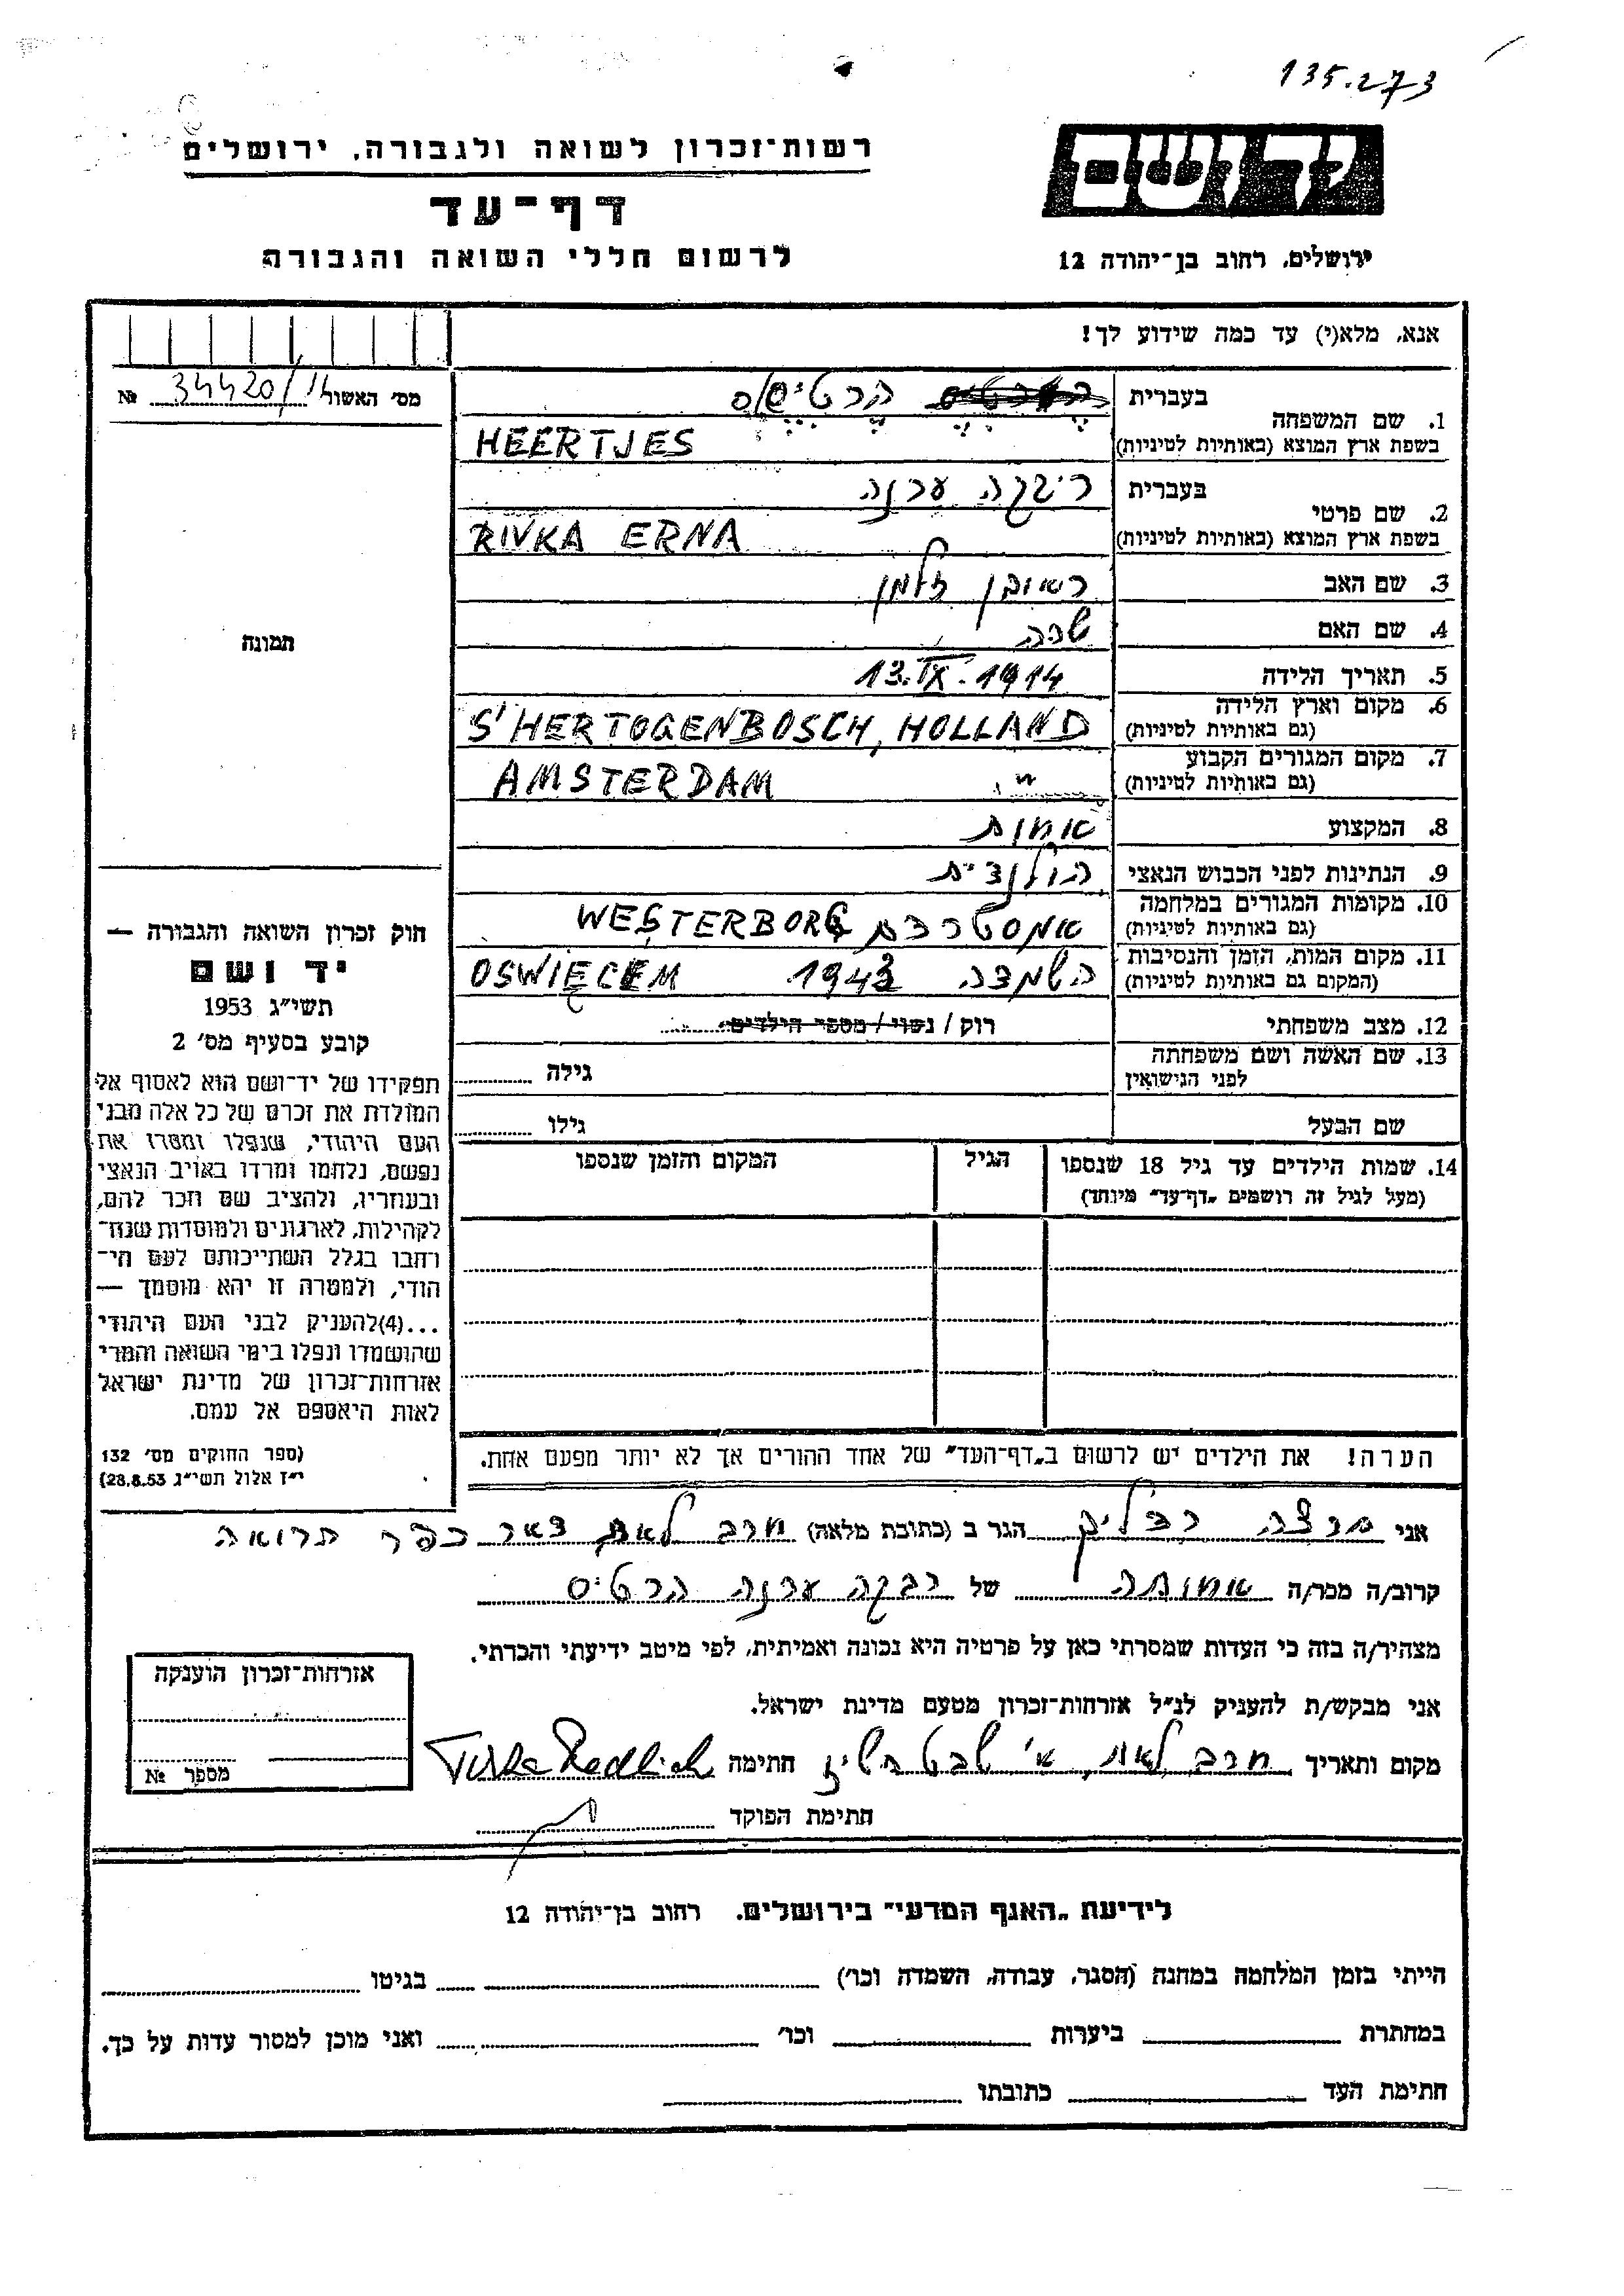 135.273
יד ושם
רשות־זכרון לשואה ולגבורה, ירושלים
דף־עד
לרשום חללי השואה והגבורה
ירושלים, רחוב בן־יהודה 12
אנא, מלא(י) עד כמה שידוע לך!
מס' האשור 34420/14 №
תמונה
חוק זכרון השואה והגבורה —
יד ושם
תשי״ג 1953
קובע בסעיף מס׳ 2
תפקידו של יד־ושם הוא לאסוף אל
המולדת את זכרם של כל אלה מבני
העם היהודי, שנפלו ומסרו את
נפשם, נלחמו ומרדו באויב הנאצי
ובעוזריו, ולהציב שם וזכר להם,
לקהילות, לארגונים ולמוסדות שנח־
רבו בגלל השתייכותם לעם הי־
הודי, ולמטרה זו יהא מוסמך —
...(4)להעניק לבני העם היהודי
שהושמדו ונפלו בימי השואה והמרי
אזרחות־זכרון של מדינת ישראל
לאות היאספם אל עמם.
(ספר החוקים מס׳ 132
י״ז אלול תשי״ג 28.8.53)
בעברית הרטיס
1. שם המשפחה
בשפת ארץ המוצא (באותיות לטיניות) HEERTJES
בעברית ריבקה ערנה
2. שם פרטי
בשפת ארץ המוצא (באותיות לטיניות) RIVKA ERNA
3. שם האב ראובן זלמן
4. שם האם שרה
5. תאריך הלידה 13.IX.1914
6. מקום וארץ הלידה
(גם באותיות לטיניות) S'HERTOGENBOSCH, HOLLAND
7. מקום המגורים הקבוע
(גם באותיות לטיניות) AMSTERDAM "
8. המקצוע אחות
9. הנתינות לפני הכבוש הנאצי הולנדית
10. מקומות המגורים במלחמה
(גם באותיות לטיניות) אמסטרדם WESTERBORG
11. מקום המות, הזמן והנסיבות
(המקום גם באותיות לטיניות) השמדה 1943 OSWIECEM
12. מצב משפחתי רוק / נשוי / מספר הילדים
13. שם האשה ושם משפחתה
לפני הנישואין גילה
שם הבעל גילו
14. שמות הילדים עד גיל 18 שנספו הגיל המקום והזמן שנספו
(מעל לגיל זה רושמים „דף־עד״ מיוחד)
הערה! את הילדים יש לרשום ב„דף־העד״ של אחד ההורים אך לא יותר מפעם אחת.
אני רדליך הגר ב (כתובת מלאה) חרב לאת דאר כפר
קרוב/ה מכר/ה אחותה של רבקה ערנה הרטיס
מצהיר/ה בזה כי העדות שמסרתי כאן על פרטיה היא נכונה ואמיתית, לפי מיטב ידיעתי והכרתי.
אני מבקש/ת להעניק לנ״ל אזרחות־זכרון מטעם מדינת ישראל.
מקום ותאריך חרב לאת, א' שבט חתימה Redlich
חתימת הפוקד
אזרחות־זכרון הוענקה
מספר №
לידיעת „האגף המדעי״ בירושלים. רחוב בן־יהודה 12
הייתי בזמן המלחמה במחנה (הסגר, עבודה, השמדה וכו׳) בגיטו
במחתרת ביערות וכו׳ ואני מוכן למסור עדות על כך.
חתימת העד כתובתו